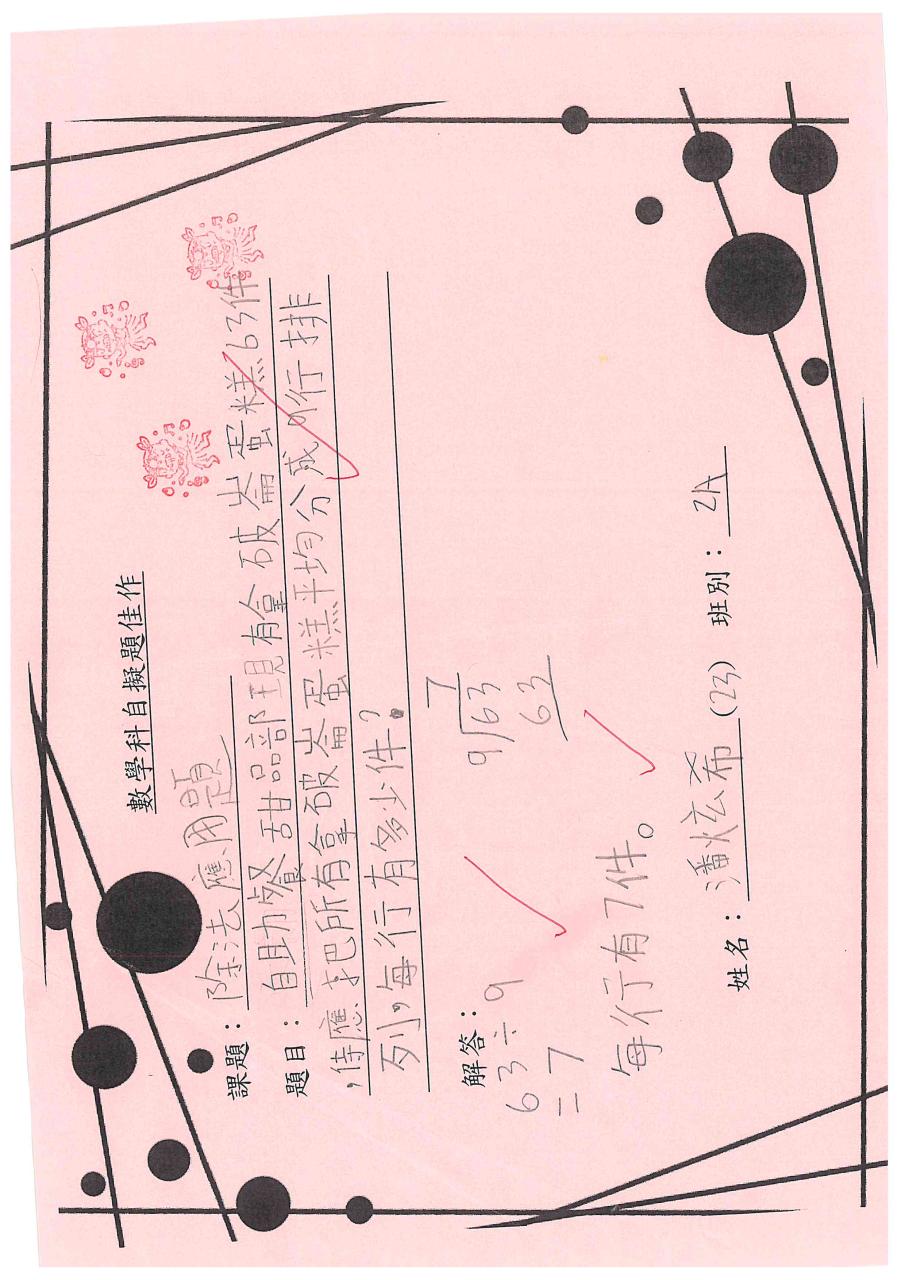 數學科自擬題佳作
課題：除法應用題
題目：自助餐甜品部現有拿破崙蛋糕63件
，侍應把所有拿破崙蛋糕平均分成9行排
列，每行有多少件？
解答：
63÷9
=7
7
9 63
63
每行有7件。
姓名：潘炫希 (23) 班別：2A